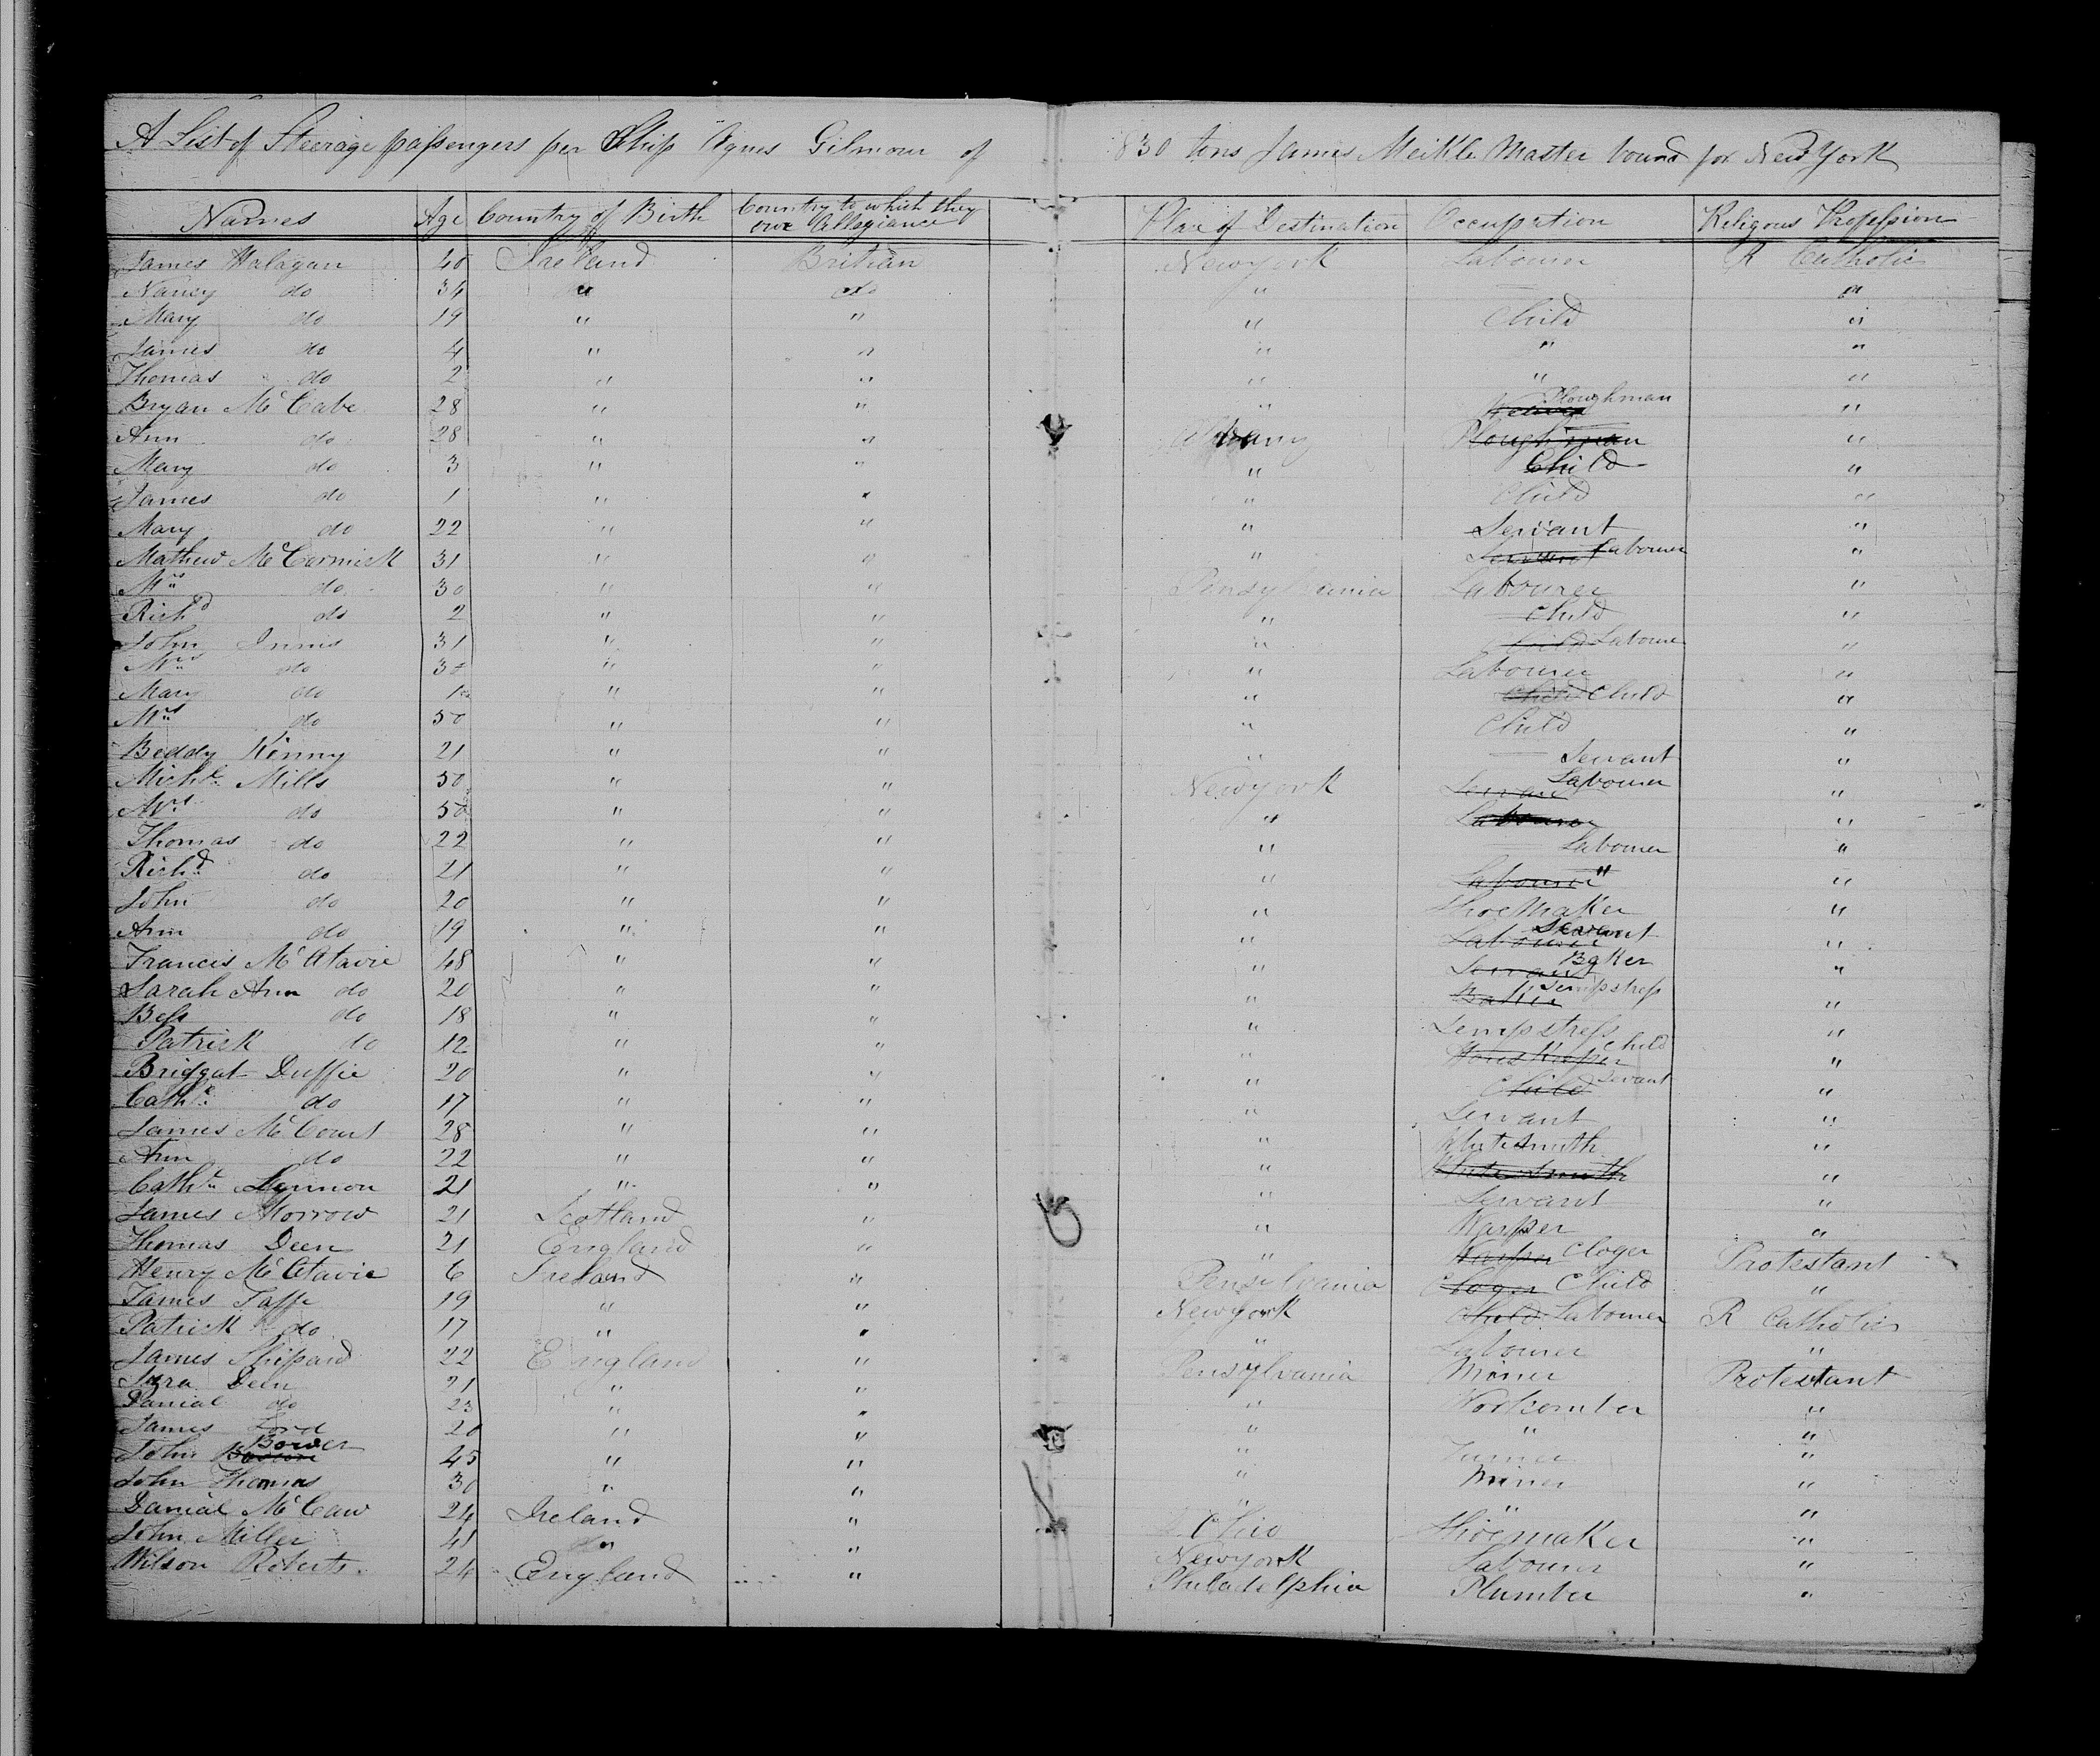 A List of Steerage passengers per Ship Agnes Gilmour of 830 tons James Meikle Master bound for New York
Names Age Country of Birth Country to which they owe Allegiance Place of Destination Occupation Religous Profession
James Halagan 40 Ireland Britian Newyork Labourer R Catholic
Nancy do 34 " do " — "
Mary do 19 " " " Child "
James do 4 " " " " "
Thomas do 2 " " " " "
Bryan McCabe 28 " " " Weaver Ploughman "
Ann do 28 " " Albany Ploughman "
Mary do 3 " " " Child "
James do 1 " " " Child "
Mary do 22 " " " Servant "
Mathew McCormick 31 " " " Servant Labourer "
Mrs do 30 " " Pensylvania Labourer "
Richd do 2 " " " Child "
John Innis 31 " " " Child Labourer "
Mrs do 30 " " " Labourer "
Mary do " " " Child Child "
Mrs do 50 " " " Child "
Beddy Kinny 21 " " " — Servant "
Michl Mills 50 " " Newyork Servant Labourer "
Mrs do 50 " " " Labourer "
Thomas do 22 " " " — Labourer "
Richd do 21 " " " Labourer " "
John do 20 " " " Shoemaker "
Ann do 19 " " " Labourer Servant "
Francis McAtavie 48 " " " Servant Baker "
Sarah Ann do 20 " " " Baker Sempstress "
Bess do 18 " " " Sempstress "
Patrick do 12 " " " House Keeper Child "
Briggat Duffie 20 " " " Child Servant "
Cathe do 17 " " " Servant "
James McCourt 28 " " " Whitesmith "
Ann do 22 " " " Whitesmith "
Cathe Lennon 21 " " " Servant "
James Morrow 21 Scotland " " Warper "
Thomas Deen 21 England " " Warper Cloger Protestant
Henry McAtavie 6 Ireland " Pensilvania Cloger Child "
James Taffe 19 " " Newyork Child Labourer R Catholic
Patrick do 17 " " " Labourer "
James Shipard 22 England " Pensylvania Miner Protestant
Deen 21 " " " Workomber "
Danial do 23 " " " " "
James Lord 20 " " " Turner "
John Bower 45 " " " Miner "
John Thomas 30 " " " " "
Danial McCaw 24 Ireland " Ohio Shoemaker "
John Miller 41 do " Newyork Labourer "
Wilson Roberts 24 England " Philadelphia Plumber "